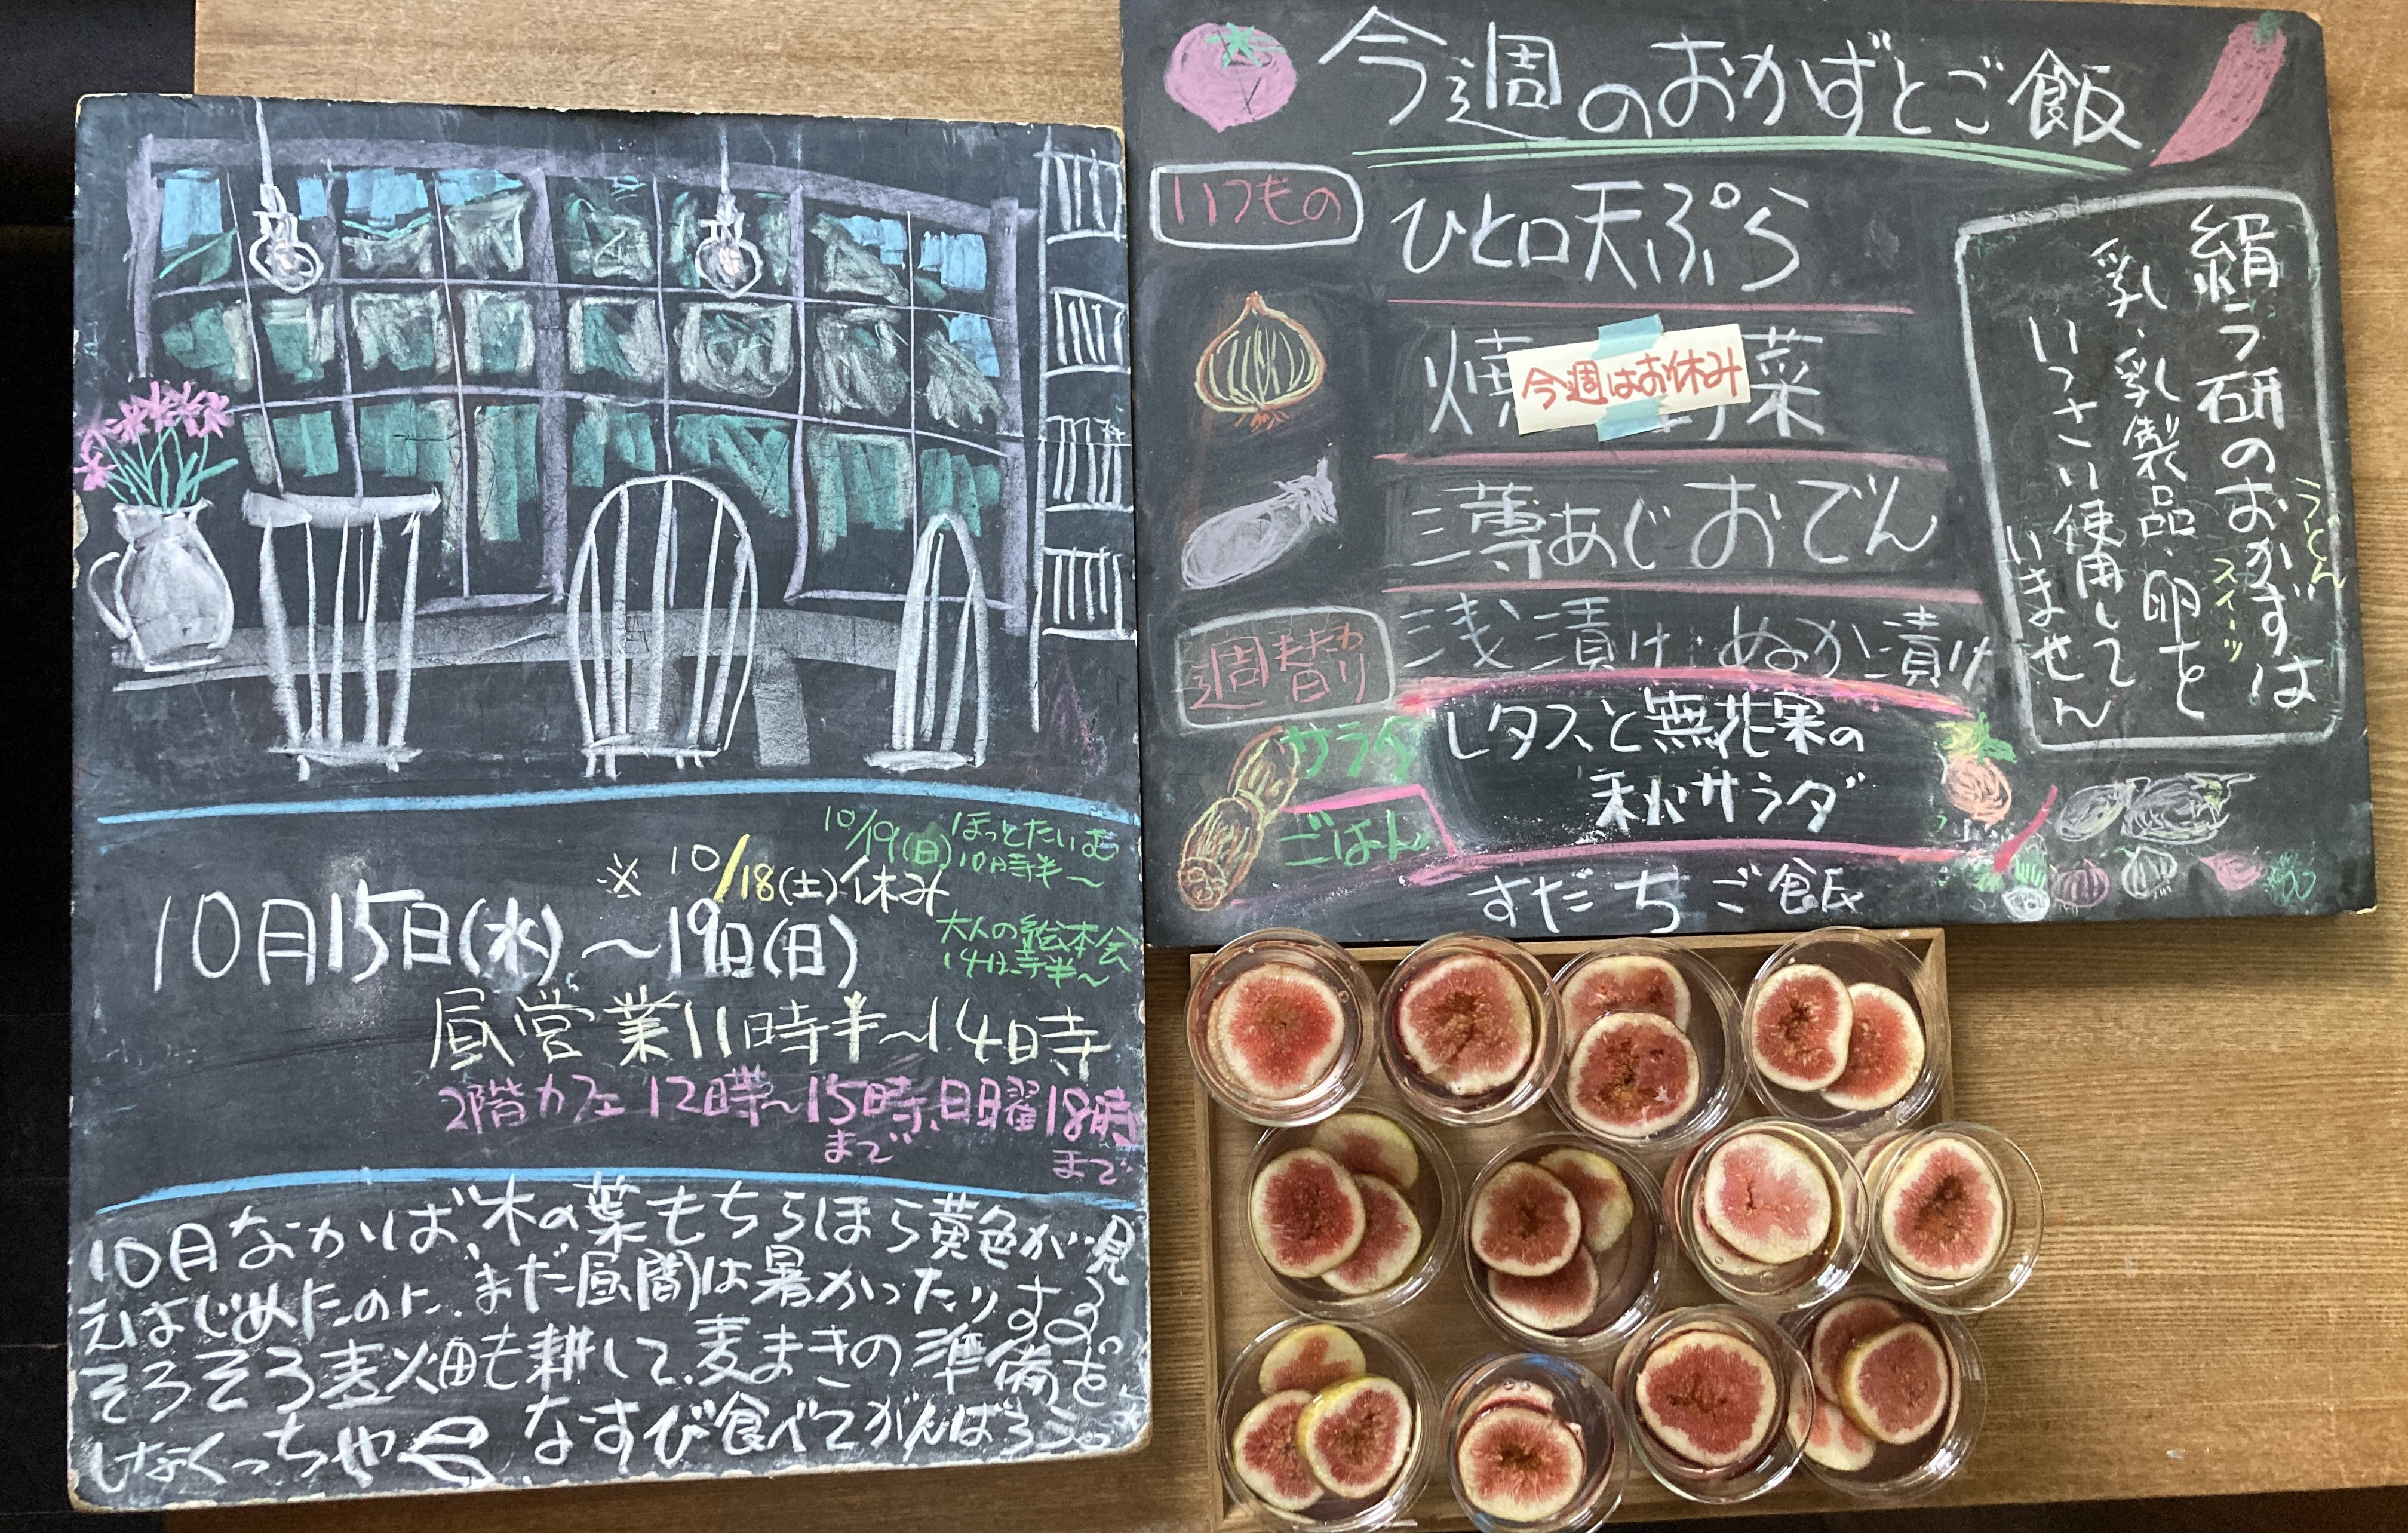 10/19(日)ほっとたいむ
10時半〜
※10/18(土)休み
大人の絵本会
14時半〜
10月15日(水)〜19日(日)
昼営業11時半〜14時
2階カフェ 12時〜15時まで、日曜18時まで
10月なかば、木の葉もちらほら黄色が見
えはじめたのに、まだ昼間は暑かったりする。
そろそろ麦畑も耕して、麦まきの準備を
しなくっちゃ なすび食べてがんばろう。
今週のおかずとご飯
いつもの
ひと口天ぷら
焼 菜
今週はお休み
三種あじおでん
浅漬け・ぬか漬け
週替わり
サラダ
レタスと無花果の
秋サラダ
ごはん
すだちご飯
絹ラ研のおかずは
うどん
スイーツ
乳、乳製品、卵を
いっさい使用して
いません